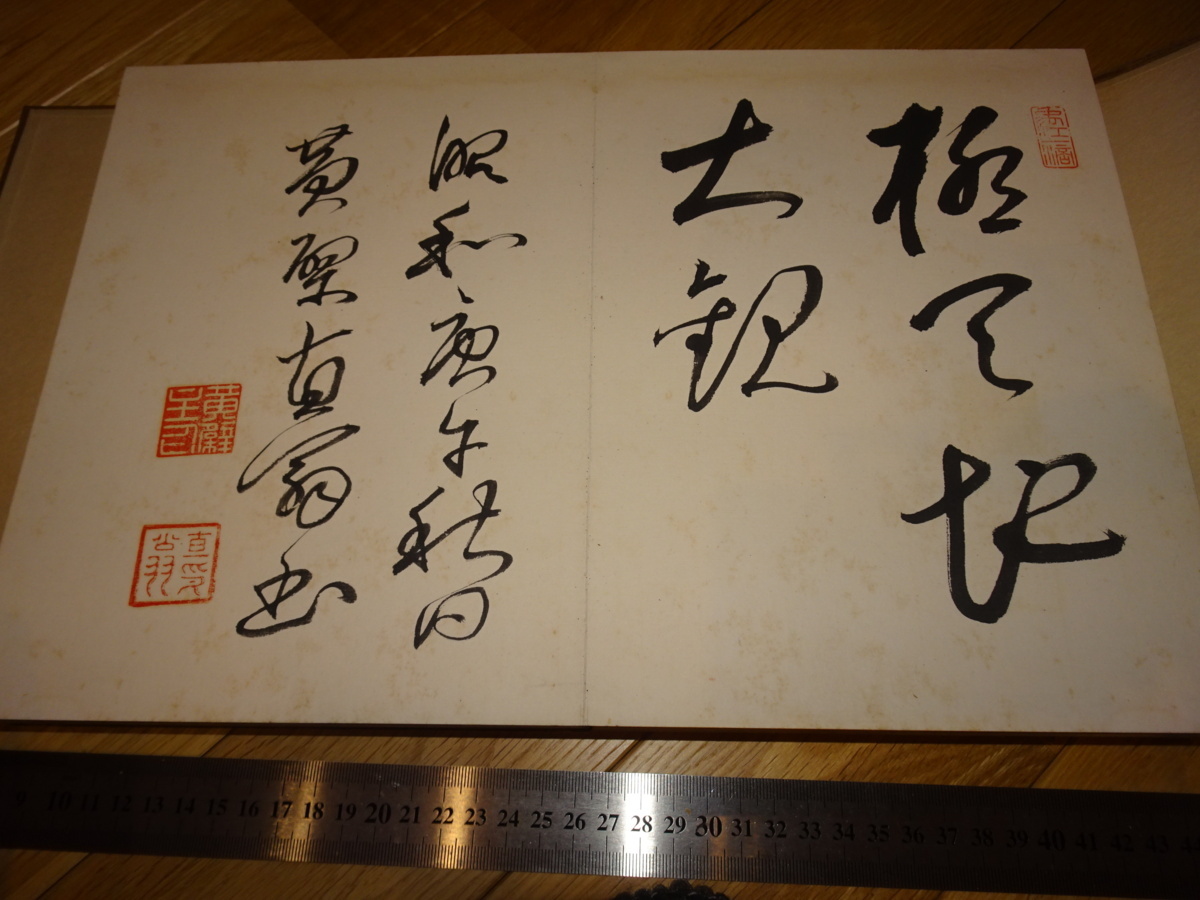 極天地
大観
昭和庚午秋日
黄檗直翁書
9 10 11 12 13 14 15 16 17 18 19 20 21 22 23 24 25 26 27 28 29 30 31 32 33 34 35 36 37 38 39 40 41 42 43